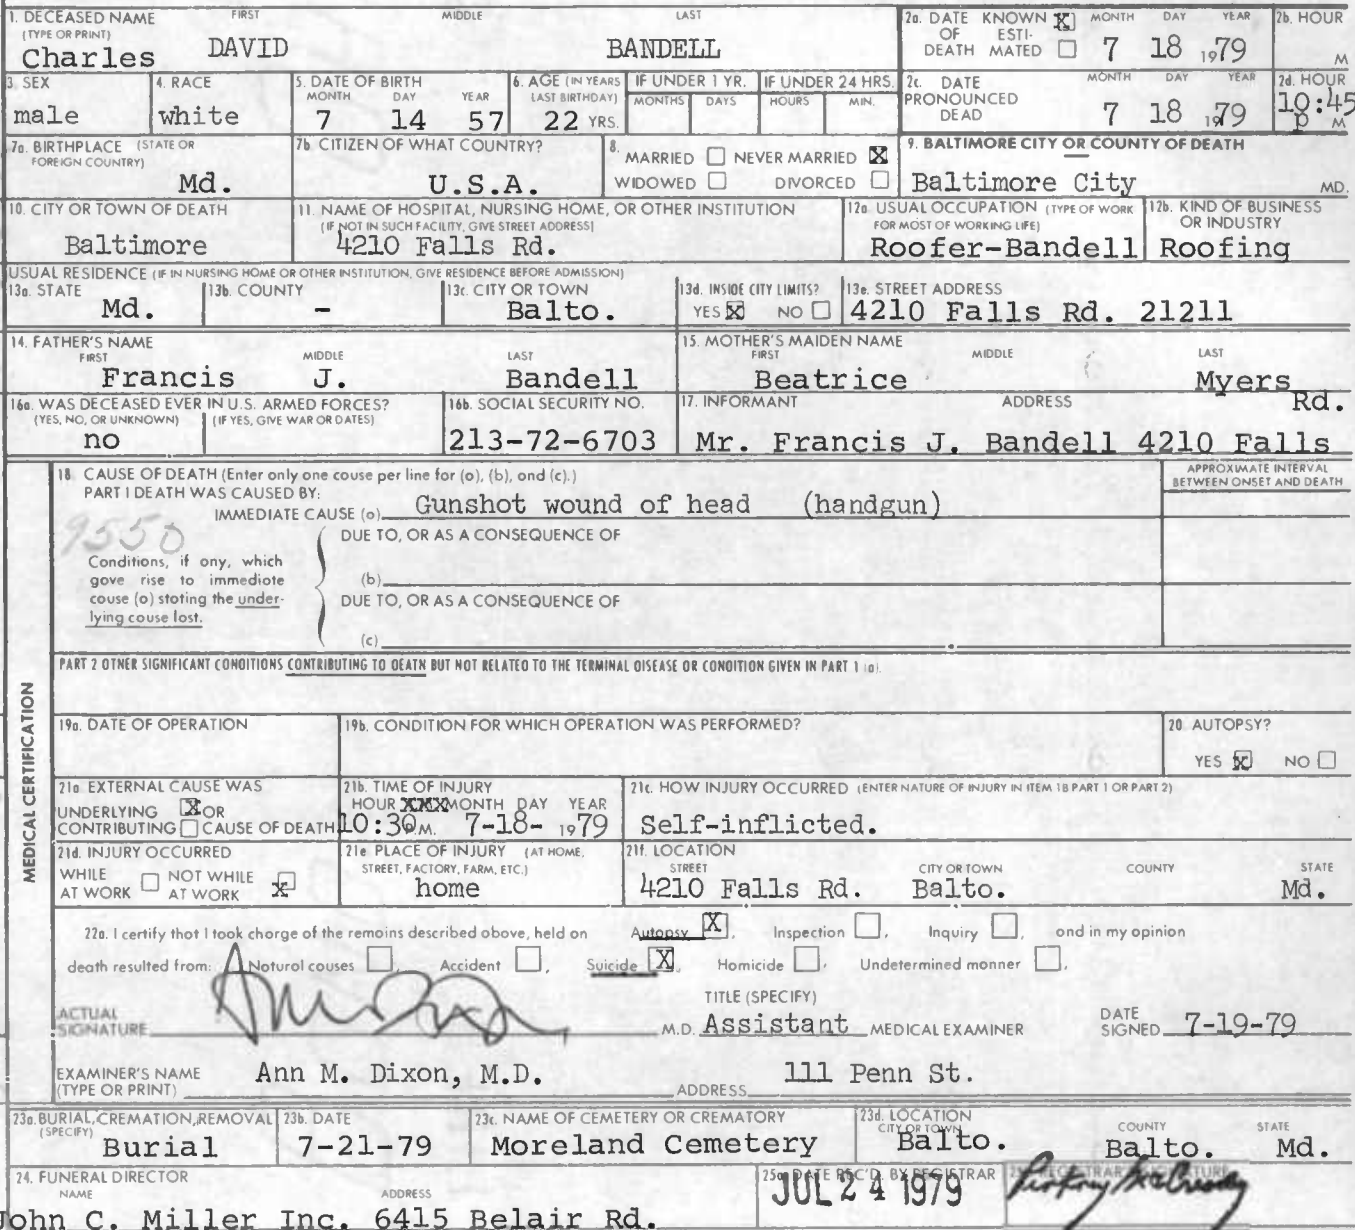 1. DECEASED NAME FIRST MIDDLE LAST
(TYPE OR PRINT)
Charles DAVID BANDELL
2a. DATE KNOWN X MONTH DAY YEAR
OF ESTI-
DEATH MATED 7 18 1979
2b. HOUR
M
3. SEX
male
4. RACE
white
5. DATE OF BIRTH
MONTH DAY YEAR
7 14 57
6. AGE (IN YEARS
LAST BIRTHDAY)
22 YRS.
IF UNDER 1 YR.
MONTHS DAYS
IF UNDER 24 HRS.
HOURS MIN.
2c. DATE MONTH DAY YEAR
PRONOUNCED
DEAD 7 18 1979
2d. HOUR
10:45
p M
7a. BIRTHPLACE (STATE OR
FOREIGN COUNTRY)
Md.
7b. CITIZEN OF WHAT COUNTRY?
U.S.A.
8.
MARRIED NEVER MARRIED X
WIDOWED DIVORCED
9. BALTIMORE CITY OR COUNTY OF DEATH
Baltimore City MD.
10. CITY OR TOWN OF DEATH
Baltimore
11. NAME OF HOSPITAL, NURSING HOME, OR OTHER INSTITUTION
(IF NOT IN SUCH FACILITY, GIVE STREET ADDRESS)
4210 Falls Rd.
12a. USUAL OCCUPATION (TYPE OF WORK
FOR MOST OF WORKING LIFE)
Roofer-Bandell
12b. KIND OF BUSINESS
OR INDUSTRY
Roofing
USUAL RESIDENCE (IF IN NURSING HOME OR OTHER INSTITUTION, GIVE RESIDENCE BEFORE ADMISSION)
13a. STATE
Md.
13b. COUNTY
-
13c. CITY OR TOWN
Balto.
13d. INSIDE CITY LIMITS?
YES X NO
13e. STREET ADDRESS
4210 Falls Rd. 21211
14. FATHER'S NAME
FIRST MIDDLE LAST
Francis J. Bandell
15. MOTHER'S MAIDEN NAME
FIRST MIDDLE LAST
Beatrice Myers
16a. WAS DECEASED EVER IN U.S. ARMED FORCES?
(YES, NO, OR UNKNOWN) (IF YES, GIVE WAR OR DATES)
no
16b. SOCIAL SECURITY NO.
213-72-6703
17. INFORMANT ADDRESS Rd.
Mr. Francis J. Bandell 4210 Falls
MEDICAL CERTIFICATION
18. CAUSE OF DEATH (Enter only one couse per line for (o), (b), ond (c).)
PART I DEATH WAS CAUSED BY:
IMMEDIATE CAUSE (o) Gunshot wound of head (handgun)
APPROXIMATE INTERVAL
BETWEEN ONSET AND DEATH
9550
DUE TO, OR AS A CONSEQUENCE OF
Conditions, if ony, which
gove rise to immediote
couse (o) stoting the under-
lying couse lost.
(b)
DUE TO, OR AS A CONSEQUENCE OF
(c)
PART 2 OTHER SIGNIFICANT CONDITIONS CONTRIBUTING TO DEATH BUT NOT RELATED TO THE TERMINAL DISEASE OR CONDITION GIVEN IN PART 1 (a).
19a. DATE OF OPERATION
19b. CONDITION FOR WHICH OPERATION WAS PERFORMED?
20. AUTOPSY?
YES X NO
21a. EXTERNAL CAUSE WAS
UNDERLYING X OR
CONTRIBUTING CAUSE OF DEATH
21b. TIME OF INJURY
HOUR XXX MONTH DAY YEAR
10:30 M. 7-18- 1979
21c. HOW INJURY OCCURRED (ENTER NATURE OF INJURY IN ITEM 18 PART 1 OR PART 2)
Self-inflicted.
21d. INJURY OCCURRED
WHILE NOT WHILE
AT WORK AT WORK X
21e. PLACE OF INJURY (AT HOME,
STREET, FACTORY, FARM, ETC.)
home
21f. LOCATION
STREET CITY OR TOWN COUNTY STATE
4210 Falls Rd. Balto. Md.
22a. I certify that I took chorge of the remoins described obove, held on Autopsy X, Inspection , Inquiry , ond in my opinion
deoth resulted from: Noturol couses , Accident , Suicide X, Homicide , Undetermined monner .
ACTUAL
SIGNATURE M.D.
TITLE (SPECIFY)
Assistant MEDICAL EXAMINER
DATE
SIGNED 7-19-79
EXAMINER'S NAME
(TYPE OR PRINT) Ann M. Dixon, M.D. ADDRESS 111 Penn St.
23a. BURIAL, CREMATION, REMOVAL
(SPECIFY)
Burial
23b. DATE
7-21-79
23c. NAME OF CEMETERY OR CREMATORY
Moreland Cemetery
23d. LOCATION
CITY OR TOWN COUNTY STATE
Balto. Balto. Md.
24. FUNERAL DIRECTOR
NAME ADDRESS
John C. Miller Inc. 6415 Belair Rd.
25a. DATE REC'D. BY REGISTRAR
JUL 24 1979
REGISTRAR'S SIGNATURE